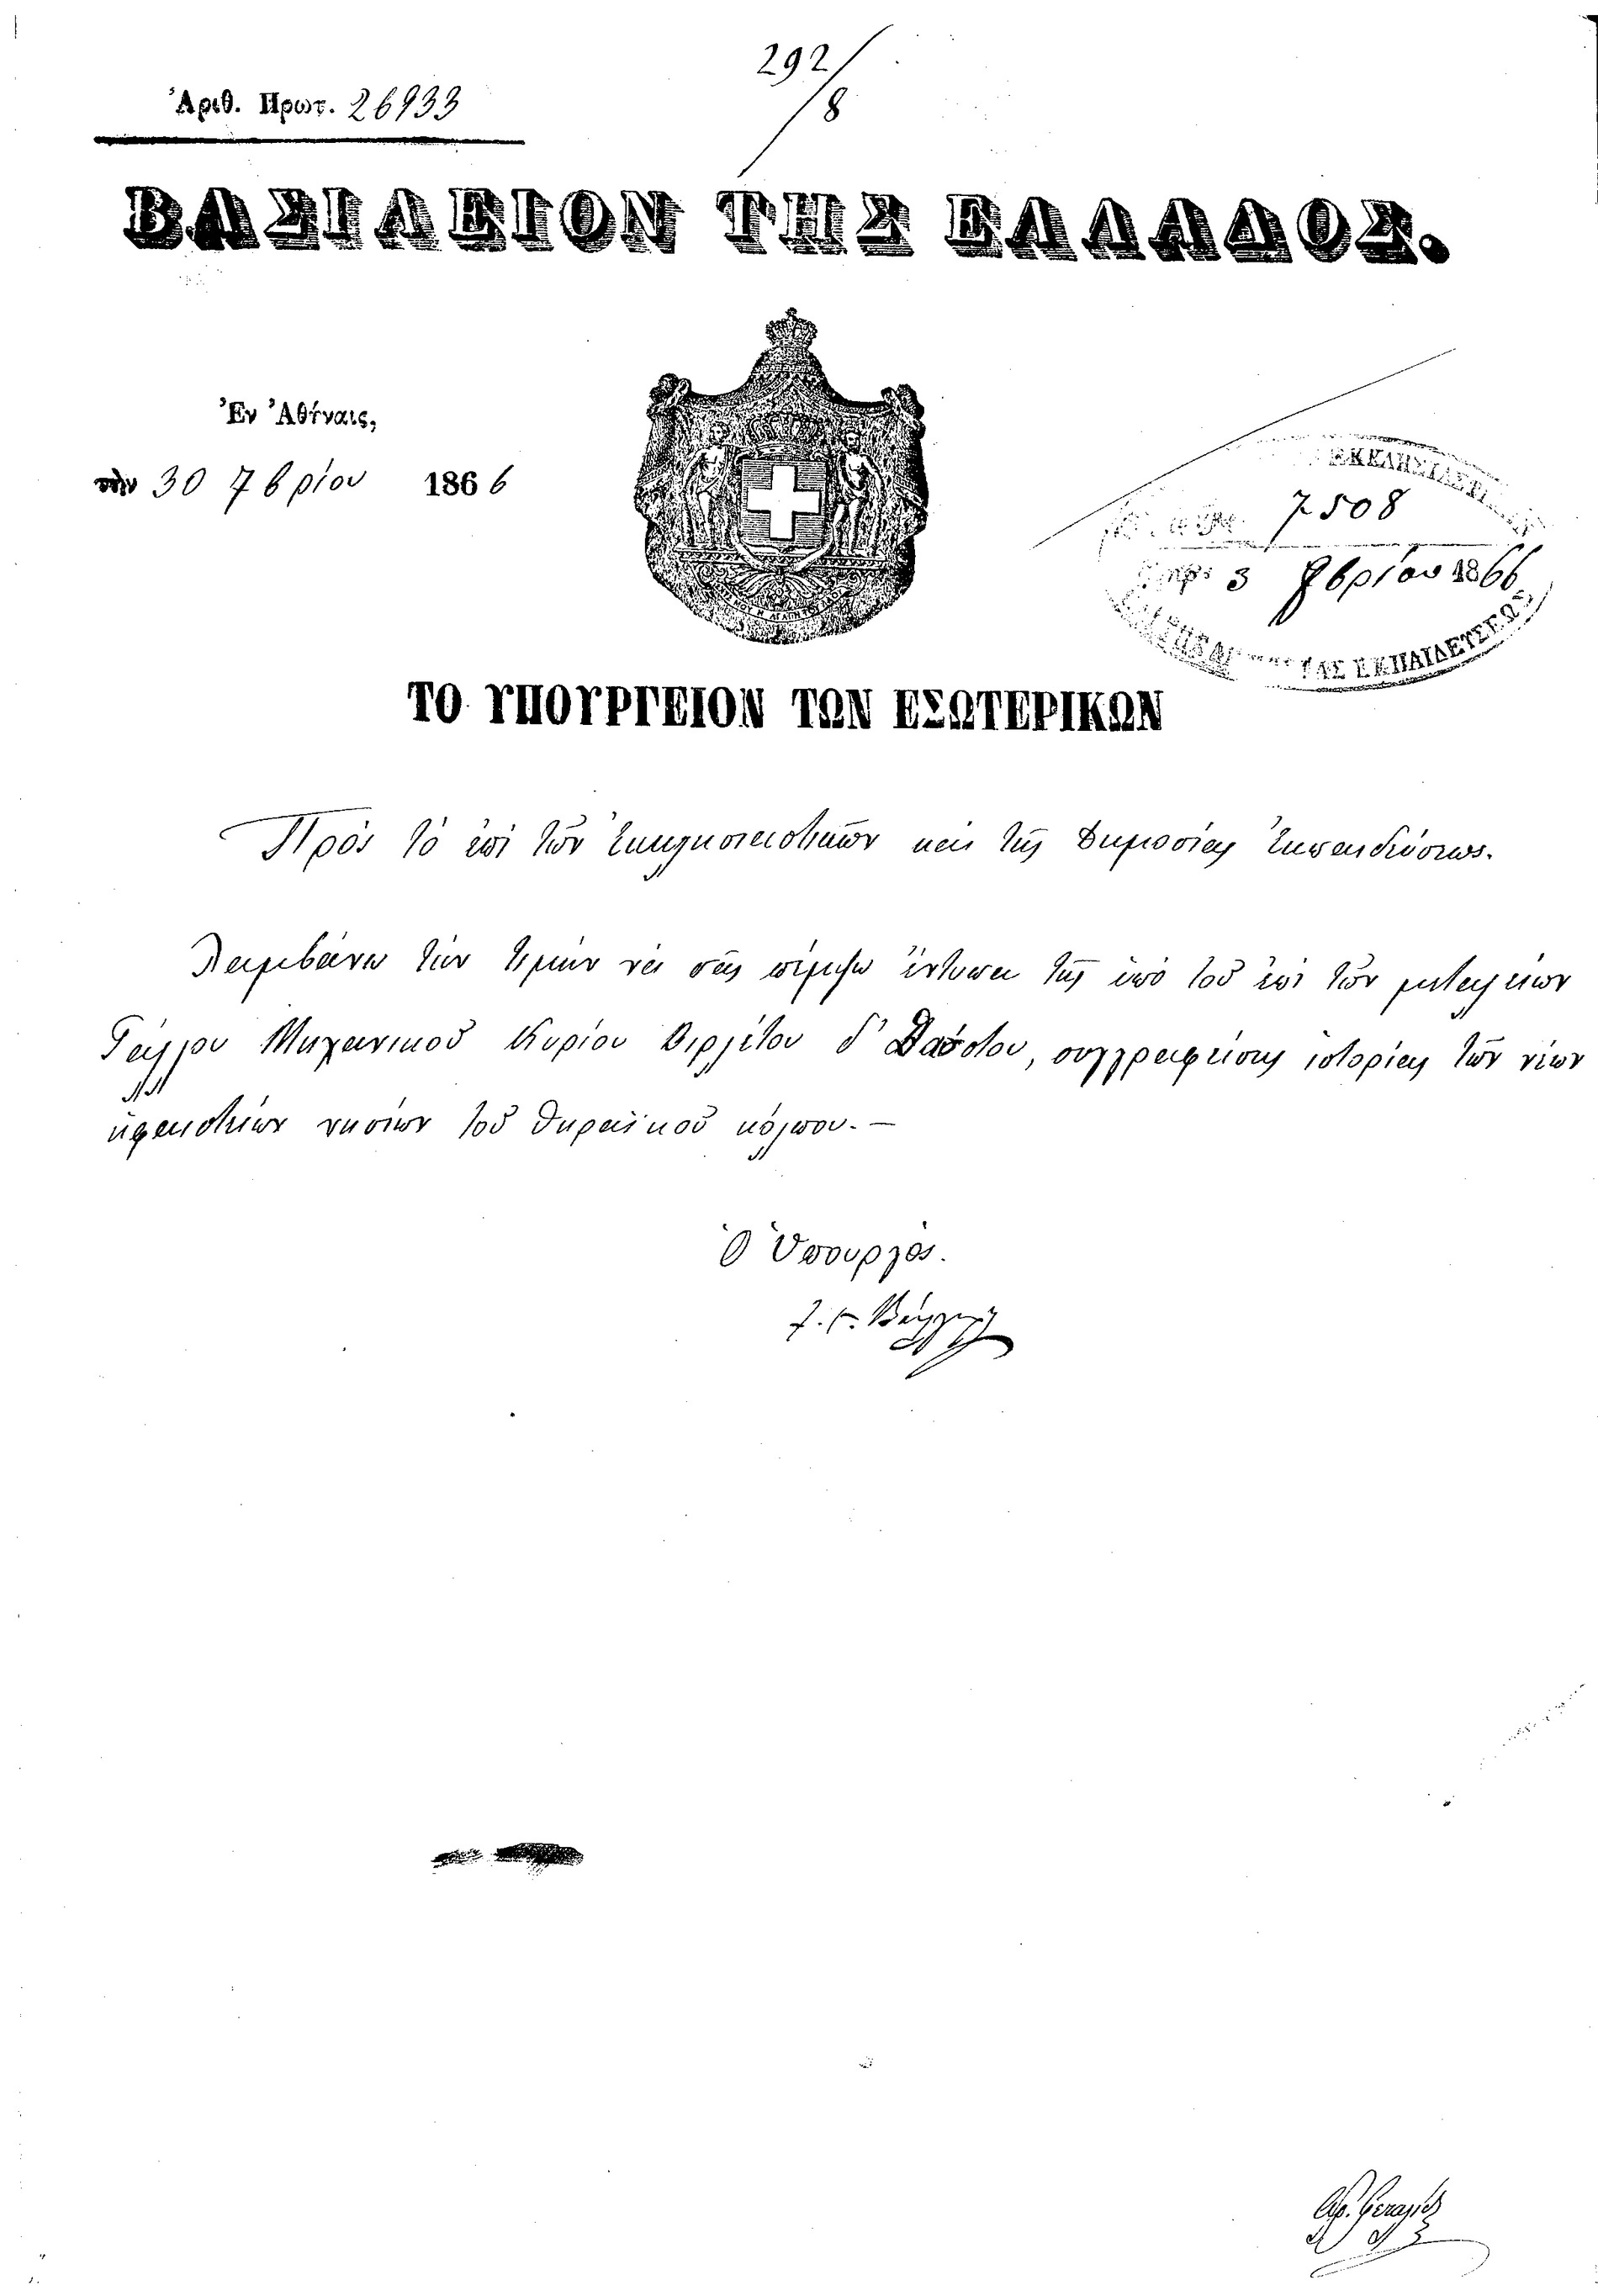 292/8
Ἀριθ. Πρωτ. 26933
ΒΑΣΙΛΕΙΟΝ ΤΗΣ ΕΛΛΑΔΟΣ.
Ἐν Ἀθήναις,
τὴν 30 7βρίου 1866
ΕΚΚΛΗΣΙΑΣΤΙ
7508
3 8βρίου 1866
ΑΣ ΕΚΠΑΙΔΕΥΣΕΩΣ
ΤΟ ΥΠΟΥΡΓΕΙΟΝ ΤΩΝ ΕΣΩΤΕΡΙΚΩΝ
Πρὸς τὸ ἐπὶ τῶν Ἐκκλησιαστικῶν καὶ τῆς Δημοσίας Ἐκπαιδεύσεως.
Λαμβάνω τὴν τιμὴν νὰ σᾶς πέμψω ἔντυπα τῆς ὑπὸ τοῦ ἐπὶ τῶν μεταλλείων
Γάλλου Μηχανικοῦ Κυρίου Βιρλέτου δ' Ἀούστου, συγγραφείσης ἱστορίας τῶν νέων
ἡφαιστείων νησίων τοῦ Θηραϊκοῦ κόλπου. —
Ὁ Ὑπουργὸς.